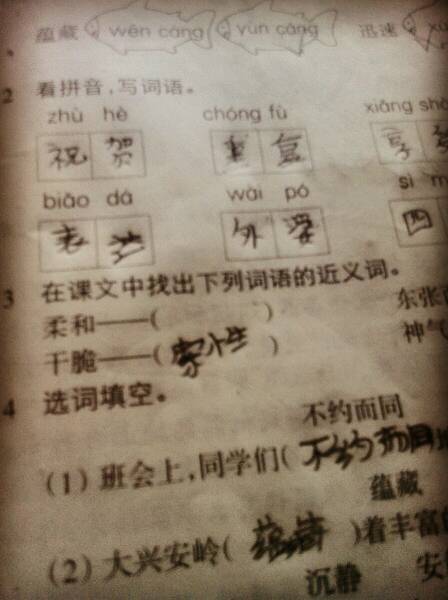 蕴藏 wēn cáng yùn cáng 迅速
2 看拼音,写词语。
zhù hè chóng fù xiǎng
祝贺 重复 享
biǎo dá wài pó sì
表达 外婆 四
3 在课文中找出下列词语的近义词。
柔和——( ) 东张
干脆——(索性) 神气
4 选词填空。
不约而同
(1)班会上,同学们(不约而同
蕴藏
(2)大兴安岭(蕴藏)着丰富的
沉静 安